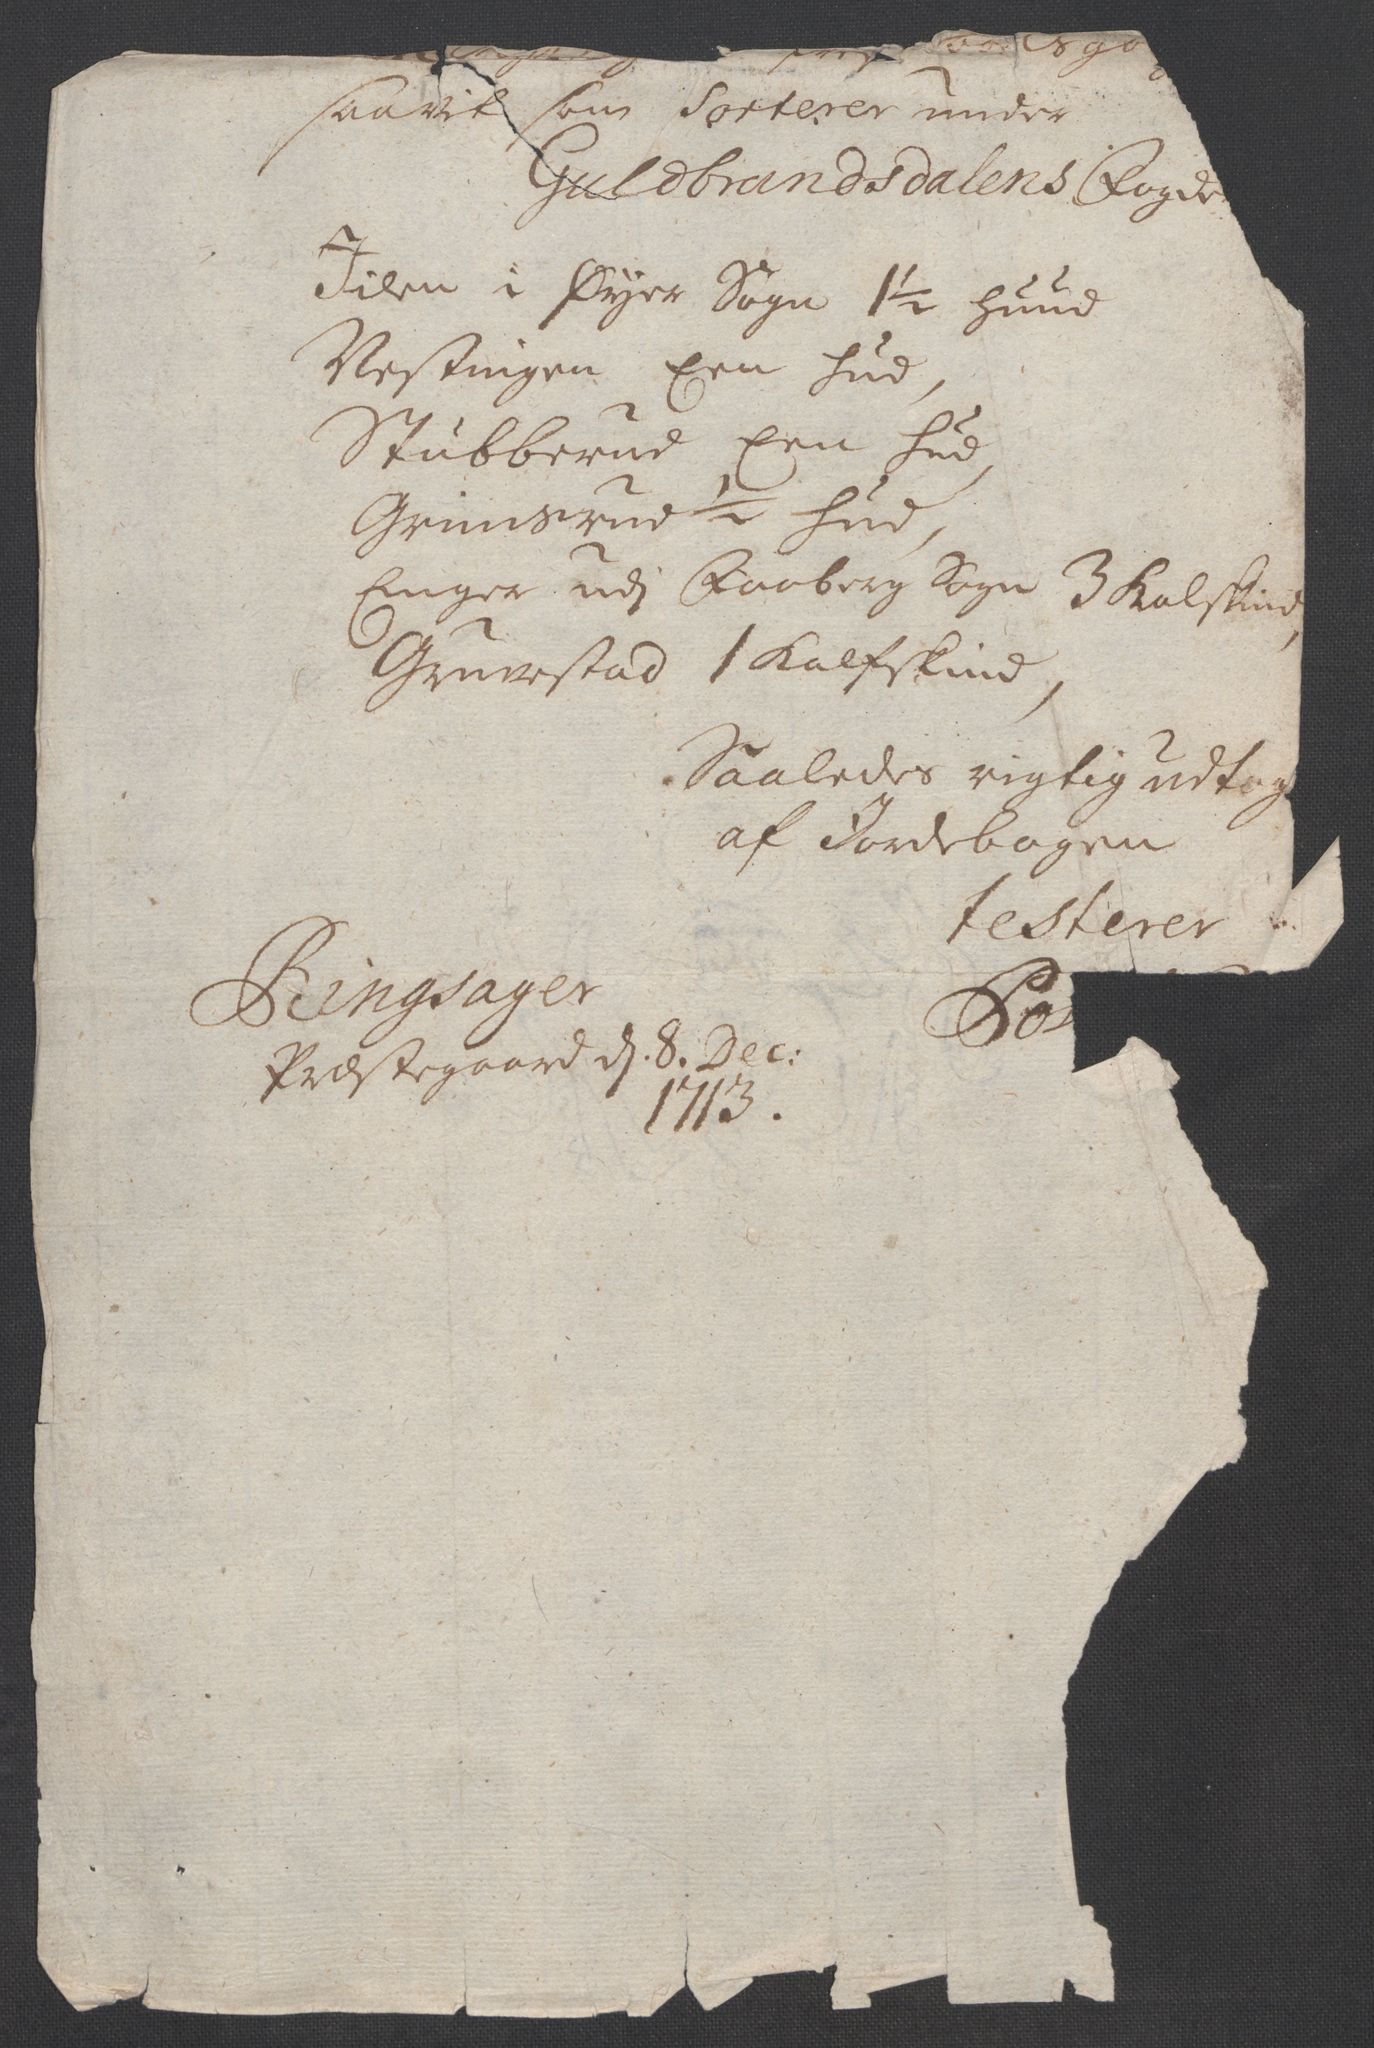 saavit som Sorterer under
Guldbrandsdalens Fogde
Jilen i Øyer Sogn 1½ huud
Vestingen Een hud,
Stubberud Een hud,
Grimsrud ½ hud,
Enger udj Faaberg Sogn 3 Kalfskind,
Gruvestad 1 Kalfskind,
Saaledes rigtig udtog
af Jordebogen
testerer
Ringsager
Præstegaard dj. 8. Dec:
1713.